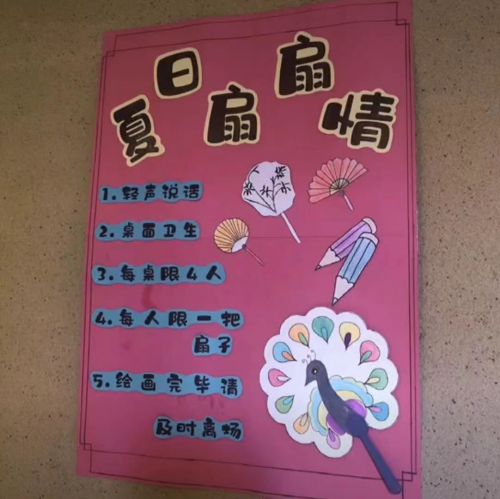 夏日扇扇情
1.轻声说话
2.桌面卫生
3.每桌限4人
4.每人限一把
扇子
5.绘画完毕请
及时离场